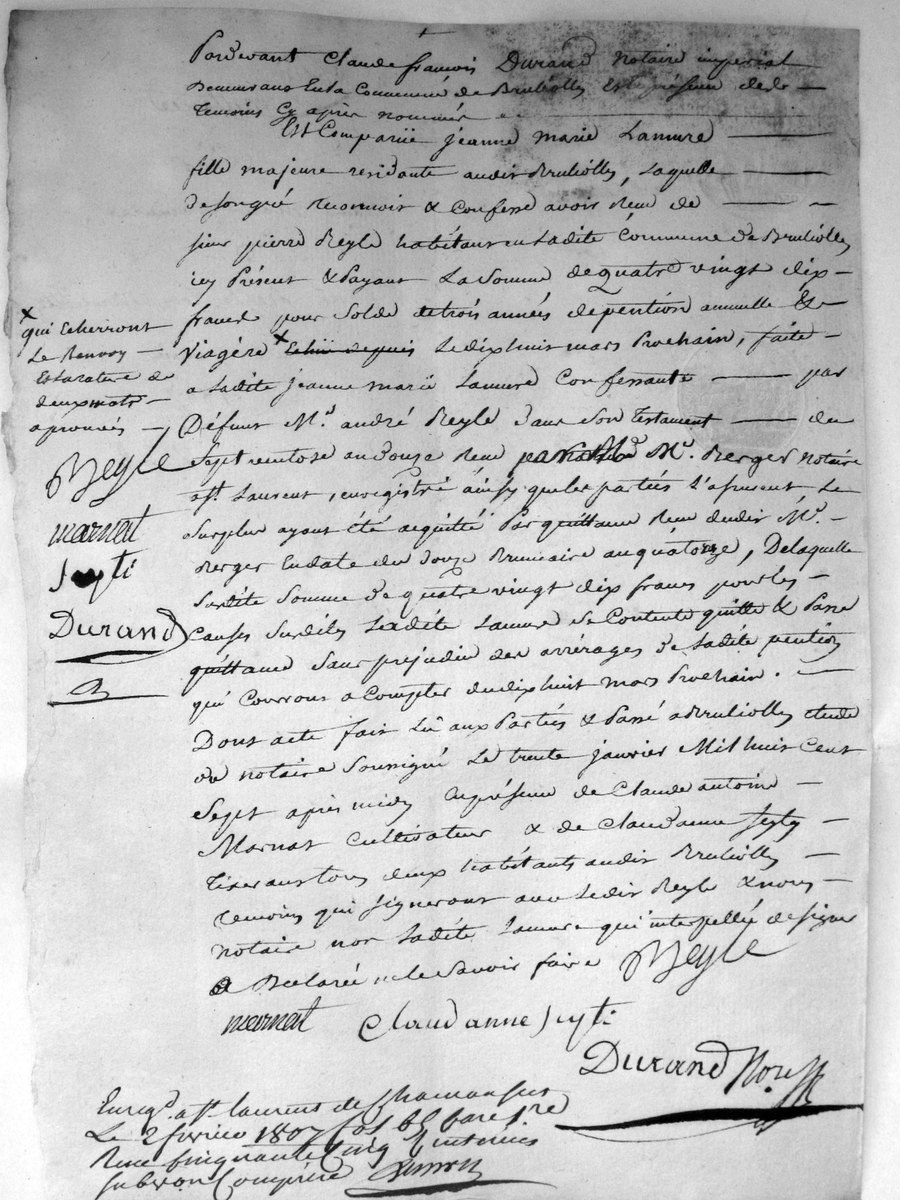 Pardevant Claude françois Durand Notaire imperial
Demeurant En la Commune de Brulliolles Est présence de de
Temoins Cy apres nommés
Est Comparüe jeanne marie Lamure
fille majeure residante audit Brulliolles, Laquelle
de son gré reconnoit & Confesse avoir Reçu de
sieur pierre Reyle habitant en Ladite Commune de Brulliolles
icy Présent & Payant La Somme de quatre vingt dix
francs pour Solde de trois années de pention annuelle &
Viagère x Echüe depuis Le dix huit mars Prochain, faite
a Ladite jeanne marie Lamure Confessante par
Défunt Mr. andré Reyle dans Son Testament du
Sept ventose an douze Reçu Mr. Berger Notaire
a St. Laurent, enregistré ainsy que les parties L'assurent Le
Surplus ayant été acquitté Par quittance Reçue dudit Mr.
Berger En date du Douze Brumaire an quatorze, De laquelle
Susdite Somme de quatre vingt dix francs pour les
Causes Susdites Ladite Lamure Se Contente quitte & Passe
quittance Sans prejudice des arrérages de Ladite pention
qui Courront a Compter du dix huit mars Prochain.
Dont acte fait Lû aux Parties & Passé a Brulliolles etude
du notaire Soussigné Le trente janvier Mil huit Cent
Sept après midy En présence de Claude antoine
Marnat Cultivateur & de Claudanne Seyty
Tisserant tous deux habitants audit Brulliolles
Temoins qui signeront avec Ledit Reyle & nous
notaire non Ladite Lamure qui interpellée de signer
a Declarée ne le Savoir faire Reyle
marnat Claudanne Seyti
Durand Nore
x
qui Echerront
Le Renvoy
Et La rature de
deux mots
aprouvés
Reyle
marnat
Seyti
Durand
Enregé. a St. laurent de Chamousset
Le 2 fevrier 1807 fol 66
Reçu Cinquante Cinq Centimes
Subvon Comprise